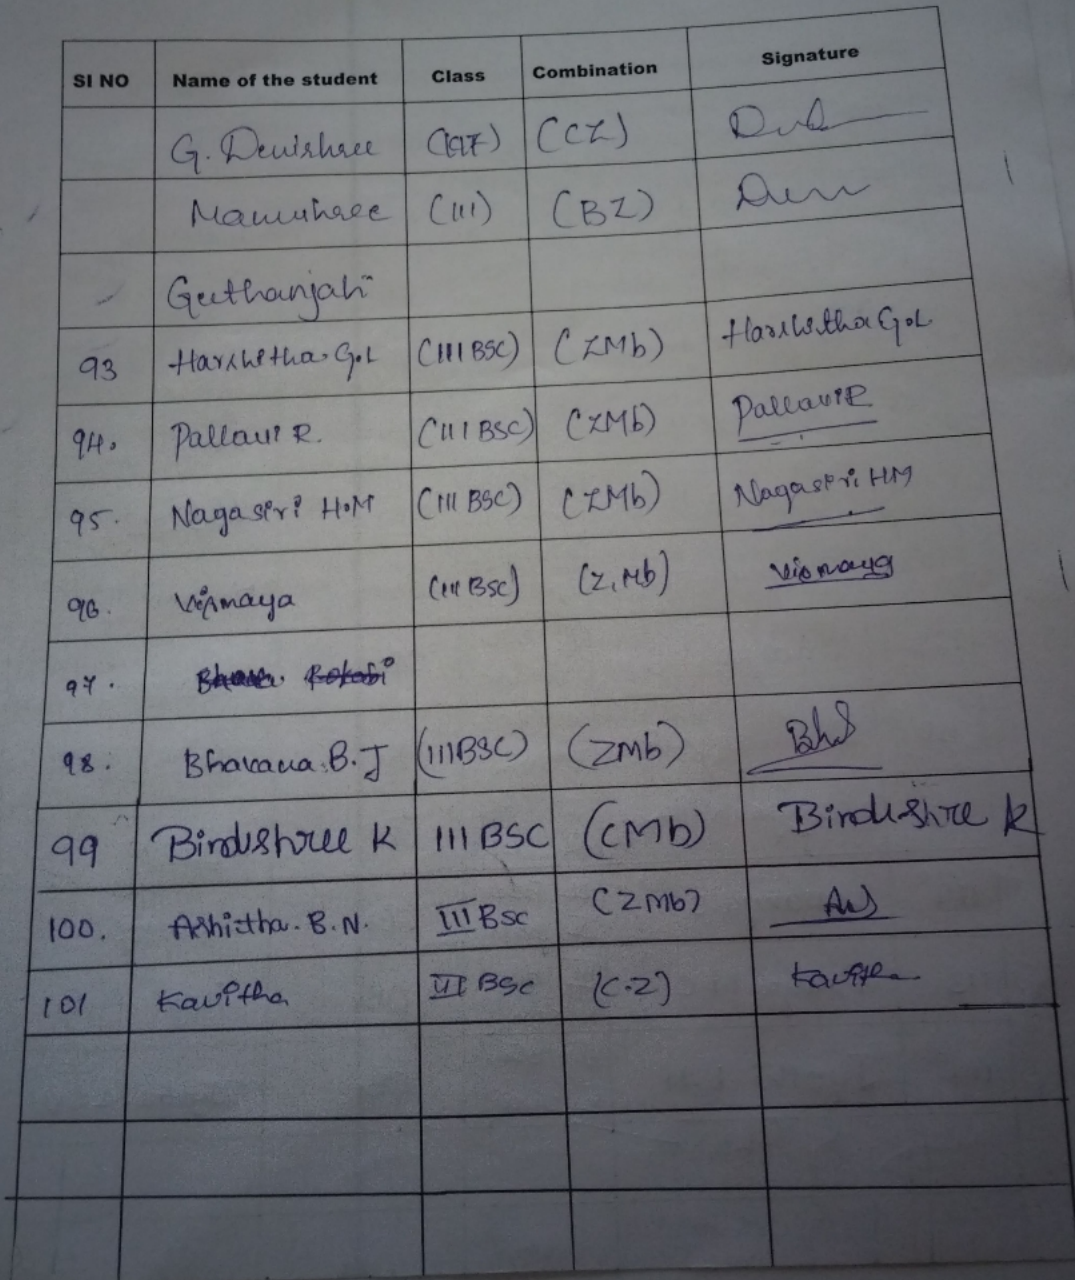 SI NO Name of the student Class Combination Signature
G. Devishree (CZ)
(III) (BZ)
Geethanjali
93 Harshitha G.L (III BSC) (ZMb) Harshitha G.L
94. Pallavi R. (III BSC) (ZMb) Pallavi R
95. Nagasiri H.M (III BSC) (ZMb) Nagasiri HM
96. Vismaya (III BSC) (Z, Mb) Vismaya
97.
98. Bhavana. B. J (III BSC) (ZMb)
99 Bindushree K III BSC (CMb) Bindushree K
100. Ashittha. B. N. III Bsc (ZMb)
101 Kavitha BSc (C.Z) Kavitha